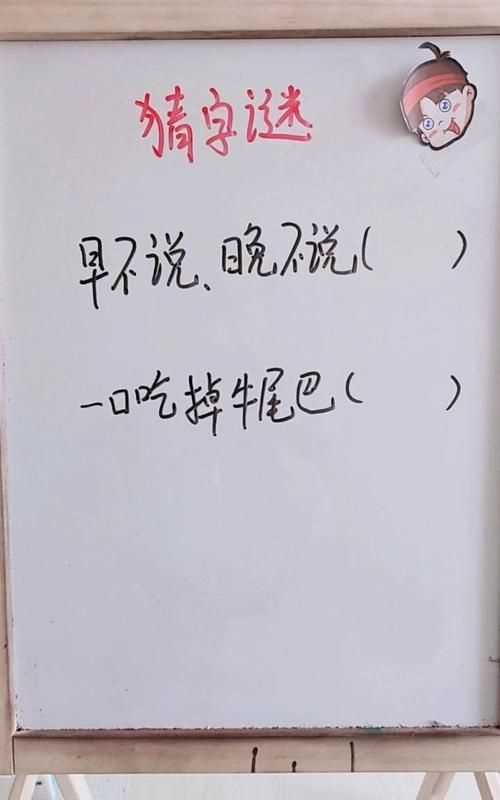 猜字谜
早不说、晚不说( )
一口吃掉牛尾巴( )